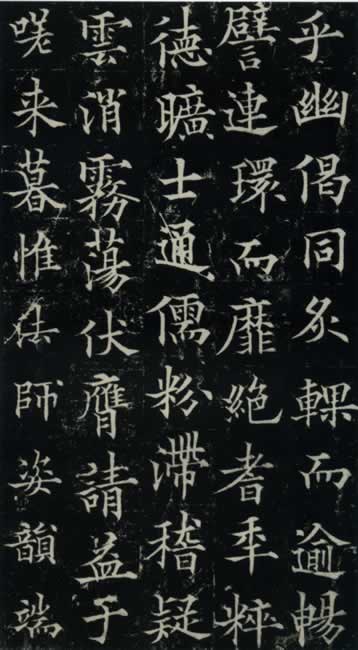 乎幽偈同炙輠而逾暢
譬連環而靡絶耆年粹
德曠士通儒粉滯稽疑
雲消霧蕩伏膺請益于
嗟来暮惟法師姿韻端